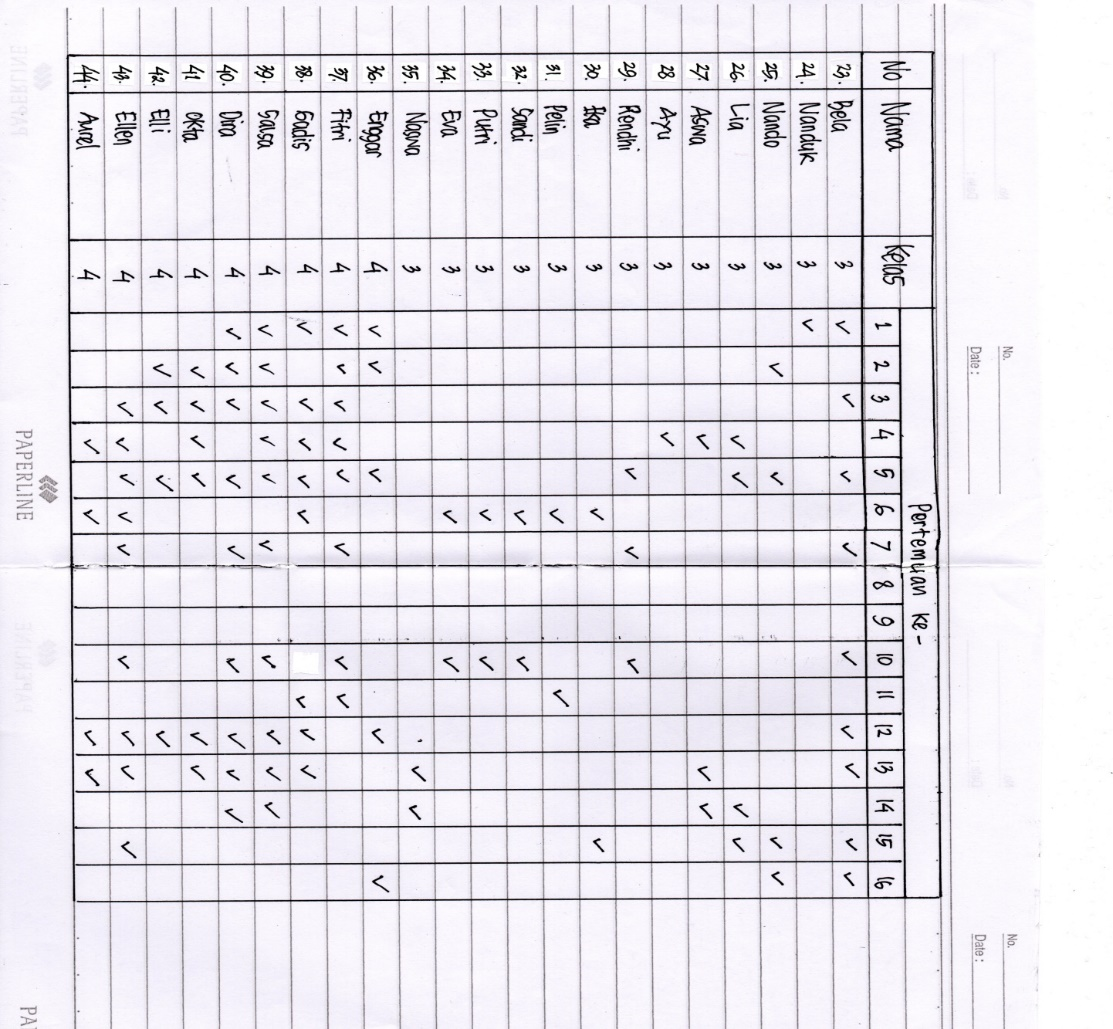 No. Date :
No. Date :
No Nama Kelas Pertemuan Ke-
1 2 3 4 5 6 7 8 9 10 11 12 13 14 15 16
23. Bela 3 ✓ ✓ ✓ ✓ ✓ ✓ ✓ ✓ ✓
24. Nanduk 3 ✓
25. Nando 3 ✓ ✓ ✓ ✓
26. Lia 3 ✓ ✓ ✓ ✓
27. 3 ✓ ✓ ✓
28. Ayu 3 ✓
29. Rendhi 3 ✓ ✓ ✓
30. Ika 3 ✓ ✓
31. Pelin 3 ✓ ✓
32. Sandi 3 ✓ ✓
33. Putri 3 ✓ ✓
34. Eva 3 ✓ ✓
35. 3 ✓ ✓
36. Enggar 4 ✓ ✓ ✓ ✓ ✓
37. Fitri 4 ✓ ✓ ✓ ✓ ✓ ✓ ✓ ✓
38. Gadis 4 ✓ ✓ ✓ ✓ ✓ ✓ ✓ ✓
39. Salsa 4 ✓ ✓ ✓ ✓ ✓ ✓ ✓ ✓ ✓ ✓
40. 4 ✓ ✓ ✓ ✓ ✓ ✓ ✓ ✓ ✓
41. Okta 4 ✓ ✓ ✓ ✓ ✓ ✓
42. Elli 4 ✓ ✓ ✓ ✓
43. Ellen 4 ✓ ✓ ✓ ✓ ✓ ✓ ✓ ✓ ✓
44. Axel 4 ✓ ✓ ✓ ✓
PAPERLINE